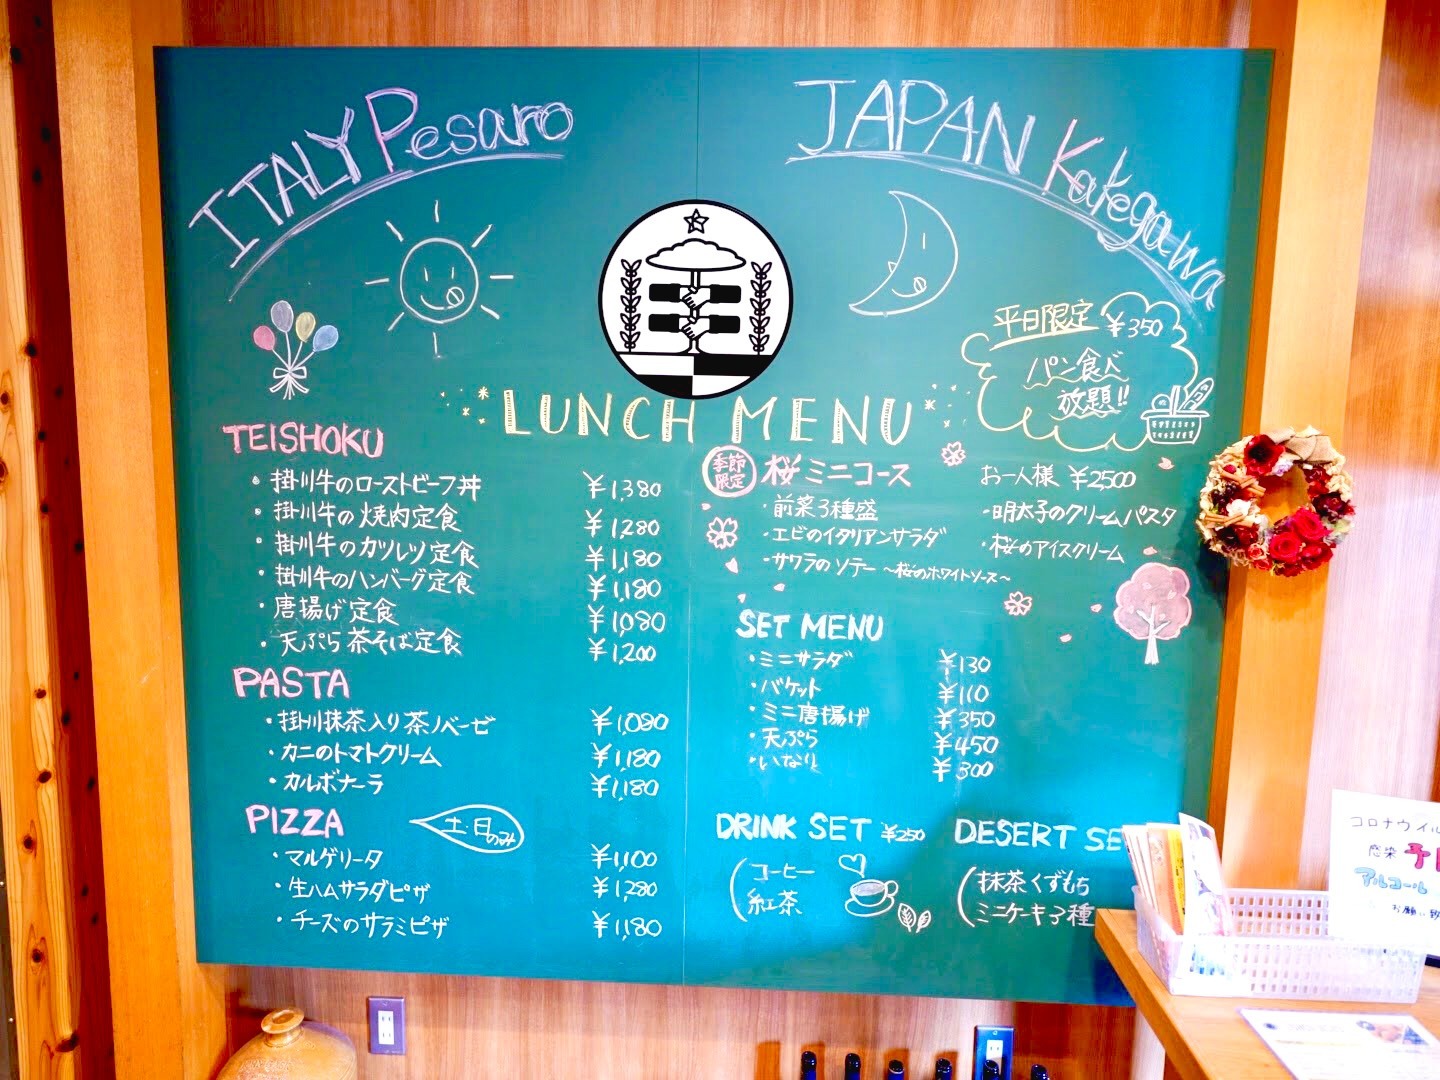 ITALY Pesaro
JAPAN Kakegawa
平日限定 ¥350
パン食べ
放題!!
LUNCH MENU
TEISHOKU
・掛川牛のローストビーフ丼 ¥1,380
・掛川牛の焼肉定食 ¥1,280
・掛川牛のカツレツ定食 ¥1,180
・掛川牛のハンバーグ定食 ¥1,180
・唐揚げ定食 ¥1,080
・天ぷら茶そば定食 ¥1,200
PASTA
・掛川抹茶入り茶ノベーゼ ¥1,080
・カニのトマトクリーム ¥1,180
・カルボナーラ ¥1,180
PIZZA
土・日のみ
・マルゲリータ ¥1,100
・生ハムサラダピザ ¥1,280
・チーズのサラミピザ ¥1,180
季節限定 桜ミニコース お一人様 ¥2500
・前菜3種盛
・エビのイタリアンサラダ
・サワラのソテー ～桜のホワイトソース～
・明太子のクリームパスタ
・桜のアイスクリーム
SET MENU
・ミニサラダ ¥130
・バケット ¥110
・ミニ唐揚げ ¥350
・天ぷら ¥450
・いなり ¥300
DRINK SET ¥250
コーヒー
紅茶
DESERT SE
抹茶くずもち
ミニケーキ3種
コロナウイル
感染 予
アルコール
お願い致